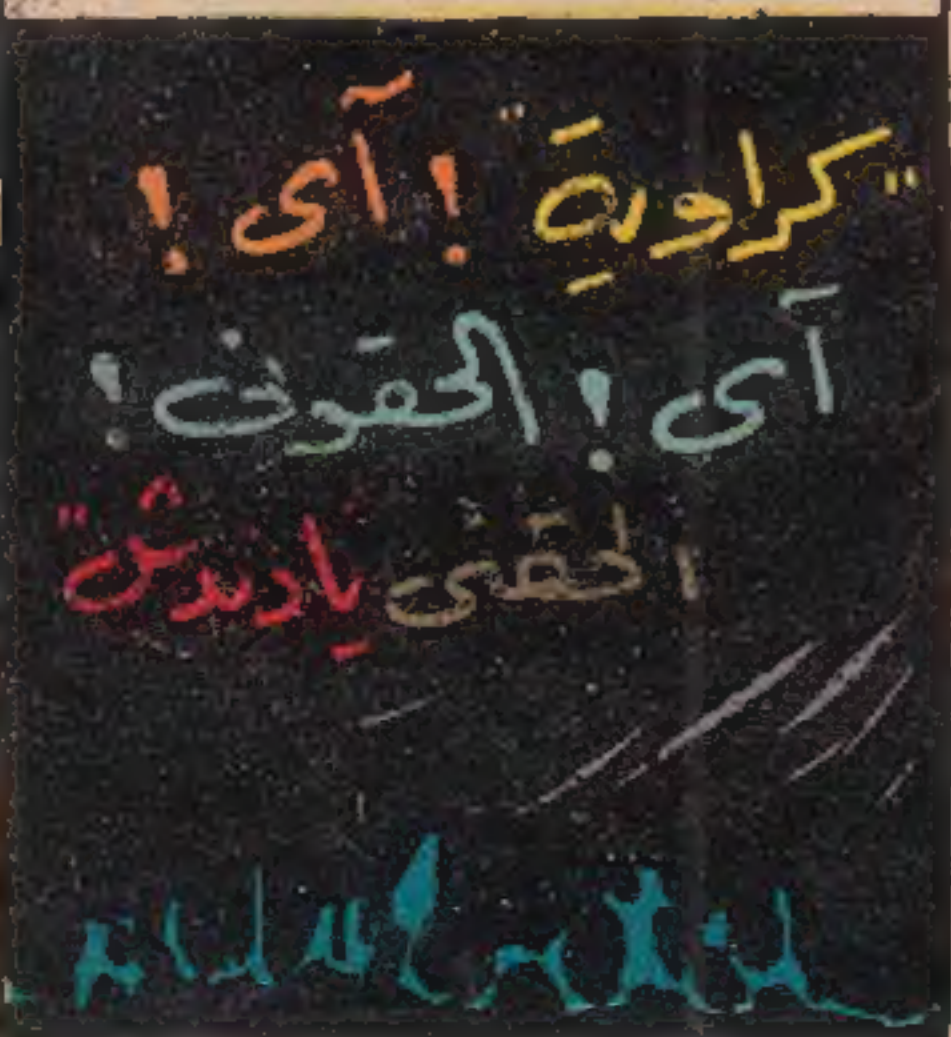 "كراوية" ! آى !
آى ! الحقونى !
الحقى يا دندش "